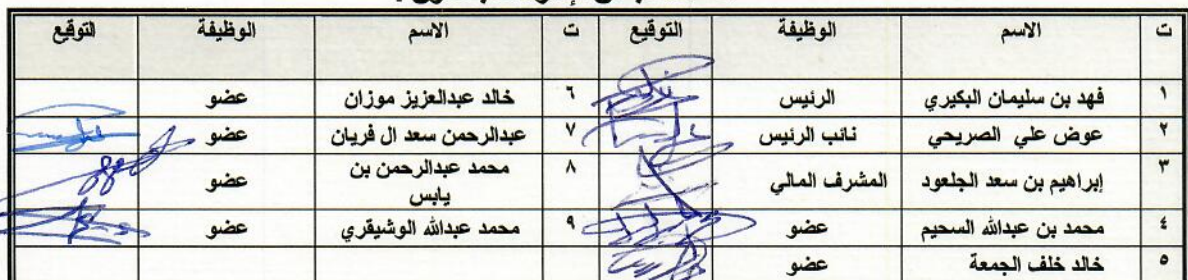 ت الاسم الوظيفة التوقيع ت الاسم الوظيفة التوقيع
١ فهد بن سليمان البكيري الرئيس ٦ خالد عبدالعزيز موزان عضو
٢ عوض علي الصريحي نائب الرئيس ٧ عبدالرحمن سعد ال فريان عضو
٣ إبراهيم بن سعد الجلعود المشرف المالي ٨ محمد عبدالرحمن بن عضو
يابس
٤ محمد بن عبدالله السحيم عضو ٩ محمد عبدالله الوشيقري عضو
٥ خالد خلف الجمعة عضو